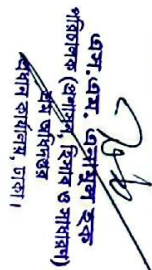 এস.এম. এনামুল হক
পরিচালক (প্রশাসন, হিসাব ও সাধারণ)
শ্রম অধিদপ্তর
প্রধান কার্যালয়, ঢাকা।